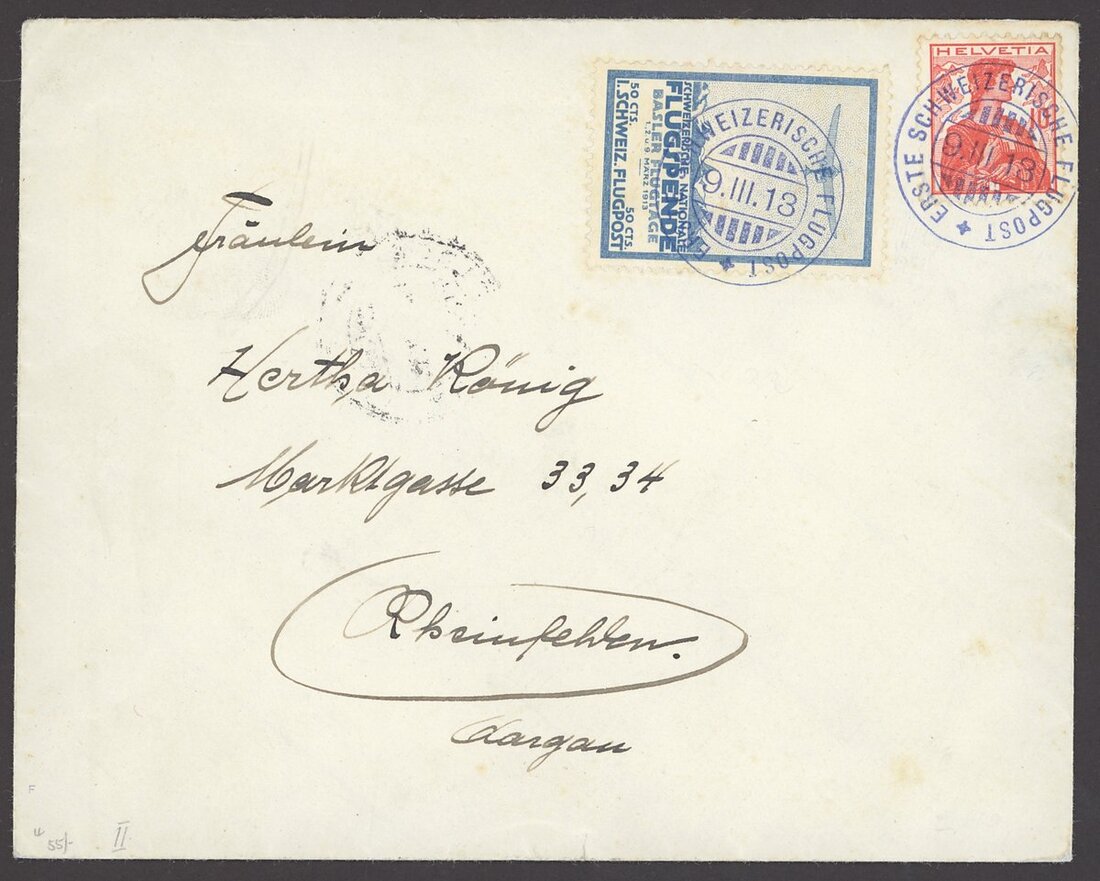 HELVETIA
10
ERSTE SCHWEIZERISCHE FLUGPOST
9.III.13
SCHWEIZERISCHE NATIONALE
FLUGSPENDE
BASLER FLUGTAGE
1. 2. U. 9. MÄRZ 1913
50 CTS. 50 CTS.
I. SCHWEIZ. FLUGPOST
SCHWEIZERISCHE FLUGPOST
9.III.13
Fräulein
Hertha König
Marktgasse 33, 34
Rheinfelden.
Aargau
F
55/-
II